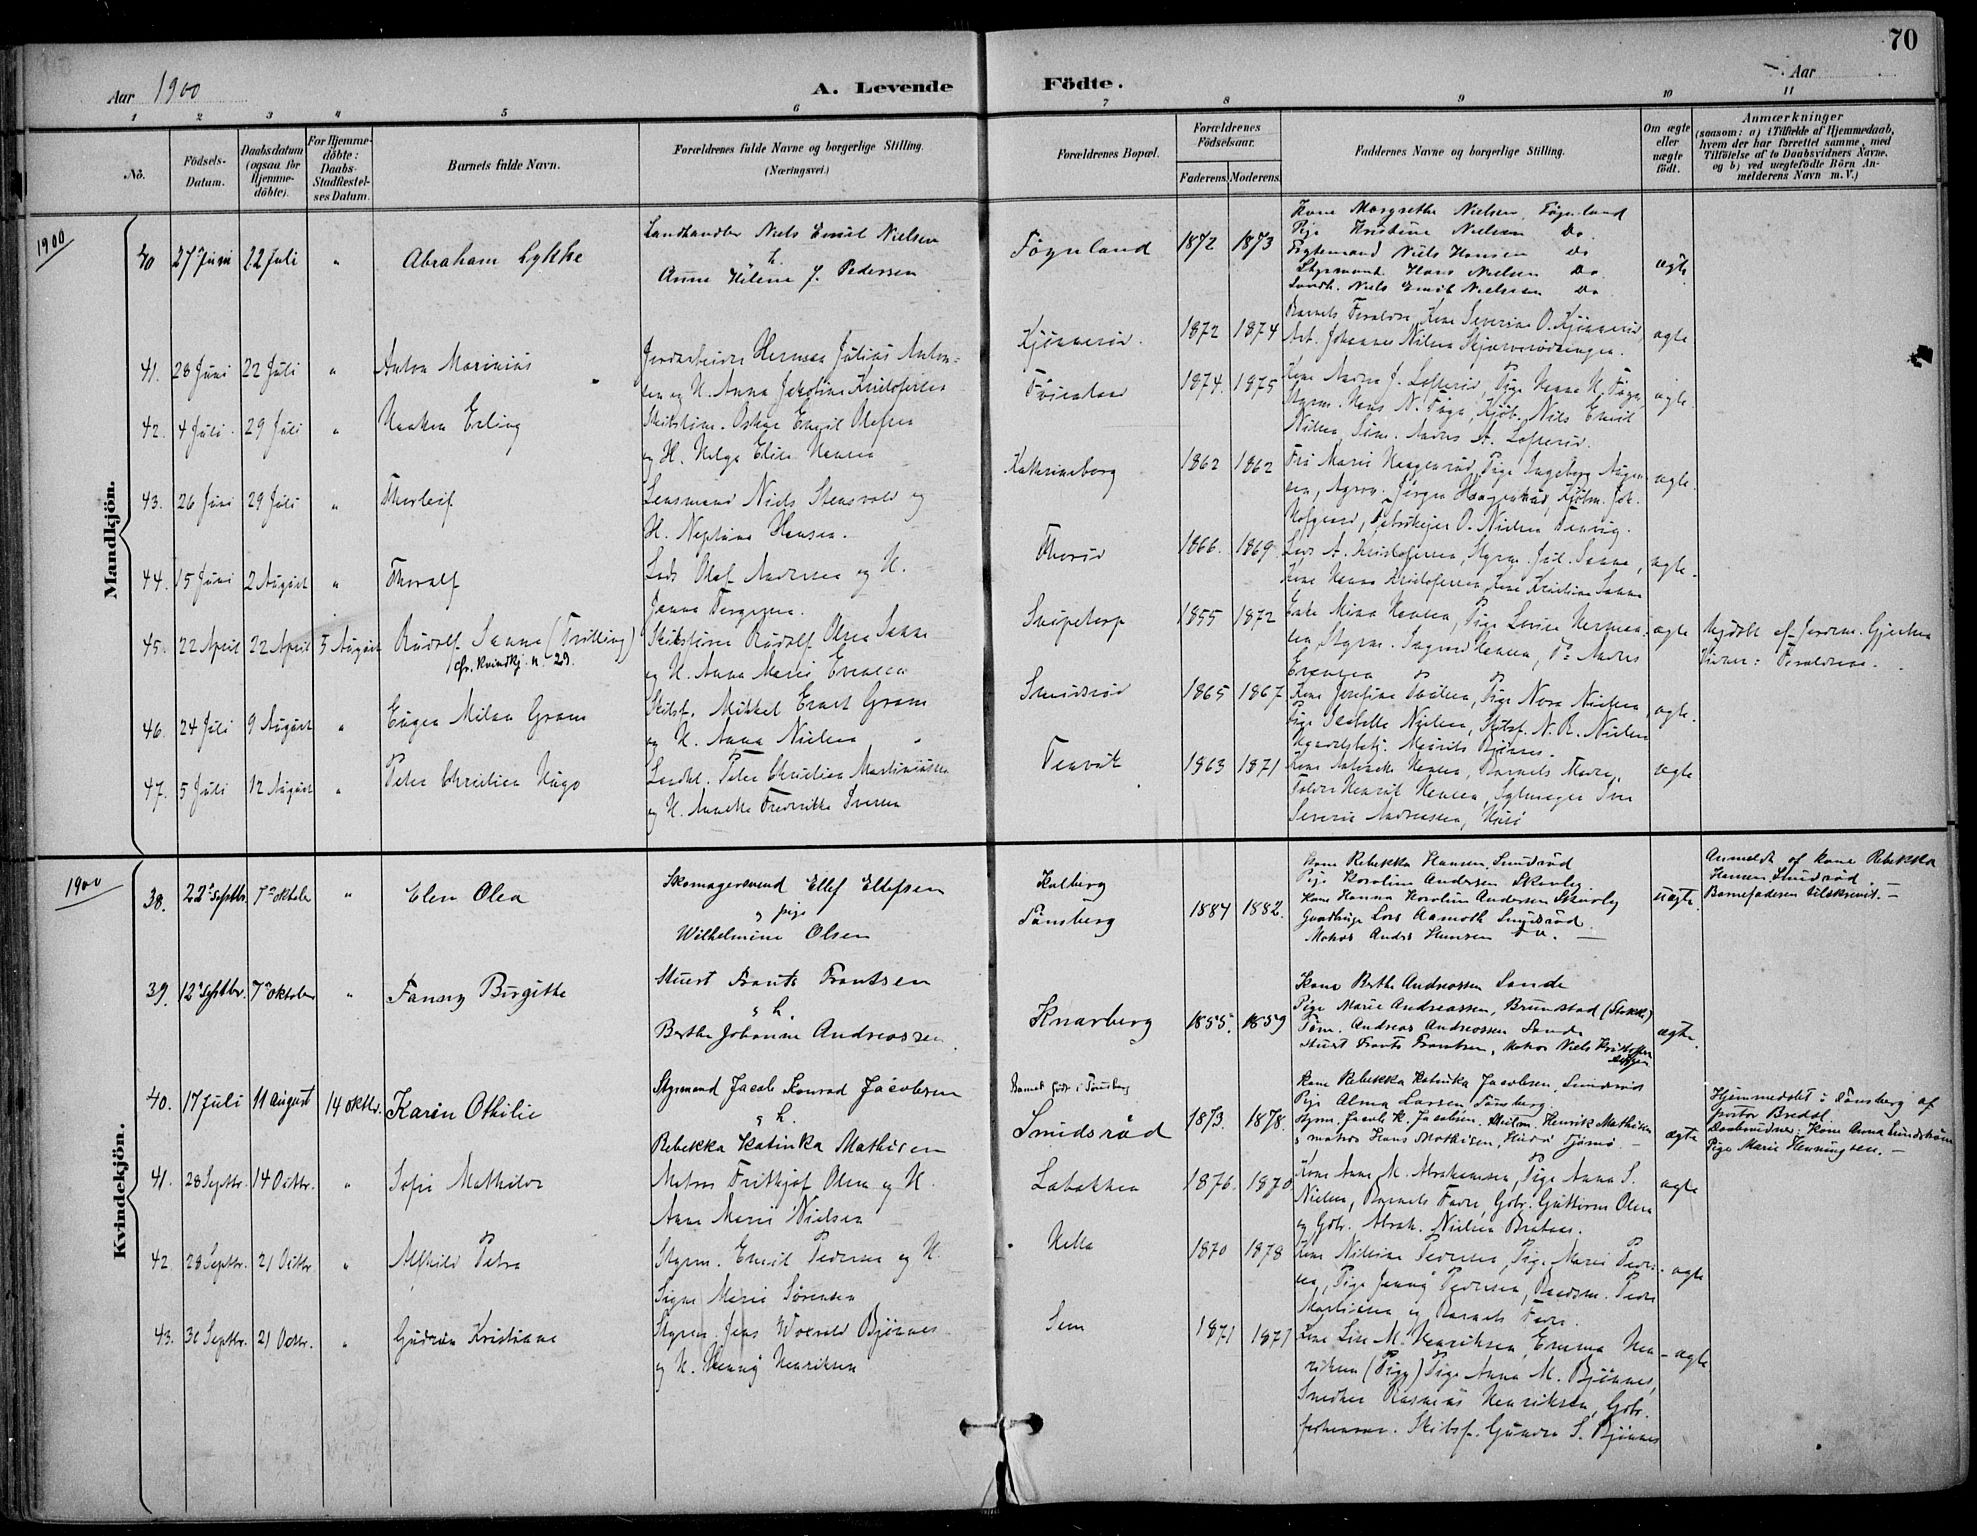 70
Aar 1900
A. Levende Födte.
Aar
1 2 3 4 5 6 7 8 9 10 11
No.
Födsels-Datum.
Daabsdatum (ogsaa for Hjemme-döbte).
For Hjemme-döbte: Daabs-Stadfæstel-ses Datum.
Barnets fulde Navn.
Forældrenes fulde Navne og borgerlige Stilling. (Næringsvei.)
Forældrenes Bopæl.
Forældrenes Födselsaar.
Faderens. Moderens.
Faddernes Navne og borgerlige Stilling.
Om ægte eller uægte födt.
Anmærkninger (saasom: a) i Tilfælde af Hjemmedaab, hvem der har forrettet samme, med Tilföielse af to Daabsvidners Navne, og b) ved uægtefödte Börn An-melderens Navn m. V.)
Mandkjön.
1900
40 27 Juni 22 Juli " Abraham Lykke
Landhandler Niels Emil Nielsen
h.
Anne Helene J. Pedersen
Föynland 1872 1873
Kone Margrethe Nielsen, Föynland
Pige Kristine Nielsen Do
Niels Hansen Do
Styrmand Hans Nielsen Do
Landh. Niels Emil Nielsen Do
ægte
41. 28 Juni 22 Juli " Anton Marinius
Jordarbeider Herman Julius Anton-
sen og H. Anna Jakobine Kristofersen
Kjönnerød. 1872 1874
Barnets Forældre, Kone Severine O. Kjönnerød,
Arb. Johannes Nilsen
ægte
42. 4 Juli 29 Juli " Haakon Erling
Skibstöm. Oskar Emil Olafsen
og H. Helga Elise Hansen
Föienland 1874. 1875
Kone Andrea J. Lofterød, Pige Hanna N. Föyn,
Styrm. Hans N. Föyn, Kjöb. Nils Emil
Nilsen, Töm. Anders A. Lofterød.
ægte.
43. 26 Juni 29 Juli " Thorleif
Lensmand Niels Stensvold og
H. Neptina Hansen.
Kathrineborg 1862 1862
Fru Marie Haagenrud, Pige Ingeborg
Agron. Jörgen Haagenrud, Kjöbm. Joh.
Hofgaard, Fabrikejer O. Nielsen Tenvig.
ægte.
44. 15 Juni 2 August " Thoralf
Lods Olaf Andersen og H.
Janna Torgersen.
Thorød 1866. 1869
Lods A. Kristofersen, Styrm. Jul. Sanne,
Kone Hanna Kristofersen, Kone Kristine Sanne
ægte.
45. 22 April 22 April 5 August Rudolf Sanne (Tvilling)
cfr. kvindkj. n. 29.
Skibstömr. Rudolf Olsen Sanne
og H. Anna Marie Evensen
Snipetorp 1855 1872
Enke Mina Hansen, Pige Lovise Herman-
sen, Styrm. Ingvard Hansen, Do Anders
Evensen
ægte
Hjdöbt af Jordm. Gjertsen
Vidner: Forældrene.
46. 24 Juli 9 August " Eugen Milan Gram
Skibsf. Mikkel Ernst Gram
og H. Anna Nielsen
Smidsrød 1865 1867
Kone Josefine Paulsen, Pige Nora Nielsen,
Pige Isabella Nielsen, Skibsf. N. R. Nielsen
Handelsbetj. Mauritz Bjönnes.
ægte.
47. 5 Juli 12 August " Peter Christian Hugo
Landhl. Peter Christian Martiniussen
og H. Annette Fredrikke Iversen
Tenvik 1863 1871
Kone Antonette Hansen, Barnets Moder,
Tolder Henrik Hansen, Sylmager Iver
Severin Andreassen, Husö
ægte
Kvindekjön.
1900
38. 22de Septbr. 7de Oktober " Elen Olea
Skomagersvend Ellef Ellefsen
& pige
Wilhelmine Olsen
Kalberg
Tönsberg
1884 1882.
Kone Rebekka Hansen Smidsröd
Pige Karoline Andersen Skerby
Kone Hanna Karoline Andersen Skerby
Gaardbruger Lars Aamoth Smidsröd
Matros Anders Hansen Do. —
uægte
Anmeldt af Kone Rebekka
Hansen Smidsrød. —
Barnefaderen tilskrevet. —
39. 12te Septbr. 7de Oktober " Fanny Birgithe
Stuert Frants Frantsen
& h.
Berthe Johanne Andreassen
Knarberg 1855. 1859
Kone Berthe Andreassen Sande
Pige Marie Andreassen, Brunstad (Stokke)
Töm. Andreas Andreassen Sande
Stuert Frants Frantsen, Matros Niels Kristoffersen
ægte.
40. 17 Juli 11 August 14 oktbr. Karen Othilie
Styrmand Jacob Konrad Jacobsen
& h.
Rebekka Katinka Mathisen
Barnet födt i Tönsberg
Smidsröd 1873. 1878.
Kone Rebekka Katinka Jacobsen, Smidsröd
Pige Alma Larsen Tönsberg
Styrm. Jacob K. Jacobsen, Skibstm. Henrik Mathisen
& matros Hans Mathisen, Husö Tjömö —
ægte
Hjemmedöbt i Tönsberg af
pastor Bredal.
Daabsvidner: Kone Anna Lundström
Pige Marie Henningsen. —
41. 28 Septbr. 14 Octbr. " Sofie Mathilde
Matros Fritthjof Olsen og H.
Anne Marie Nielsen
Labakken 1876. 1870
Kone Anne M. Abrahamsen, Pige Anna S.
Nielsen, Barnets Fader, Gbr. Guttorm Olsen
og Gbr. Abrah. Nielsen Brataas.
ægte
42. 28 Septbr. 21 Octbr " Alfhild Petra
Styrm. Emil Pedersen og H.
Signe Marie Sørensen
Netta 1870 1878
Kone Nilsine Pedersen, Pige Marie Peder-
sen, Pige Jenny Pedersen, Baadsm. Peder
Martinsen og Barnets Fader.
ægte
43. 30 Septbr. 21 Octbr. " Gudrun Kristiane
Styrm. Jens Woxvold Bjönnes
og H. Henny Henriksen
Sem 1871 1871
Kone Lise M. Henriksen, Emma Hen-
riksen (Pige) Pige Anna M. Bjönnes,
Snedker Rasmus Henriksen, Gbr.
Skibsf. Gunder S. Bjönnes
ægte